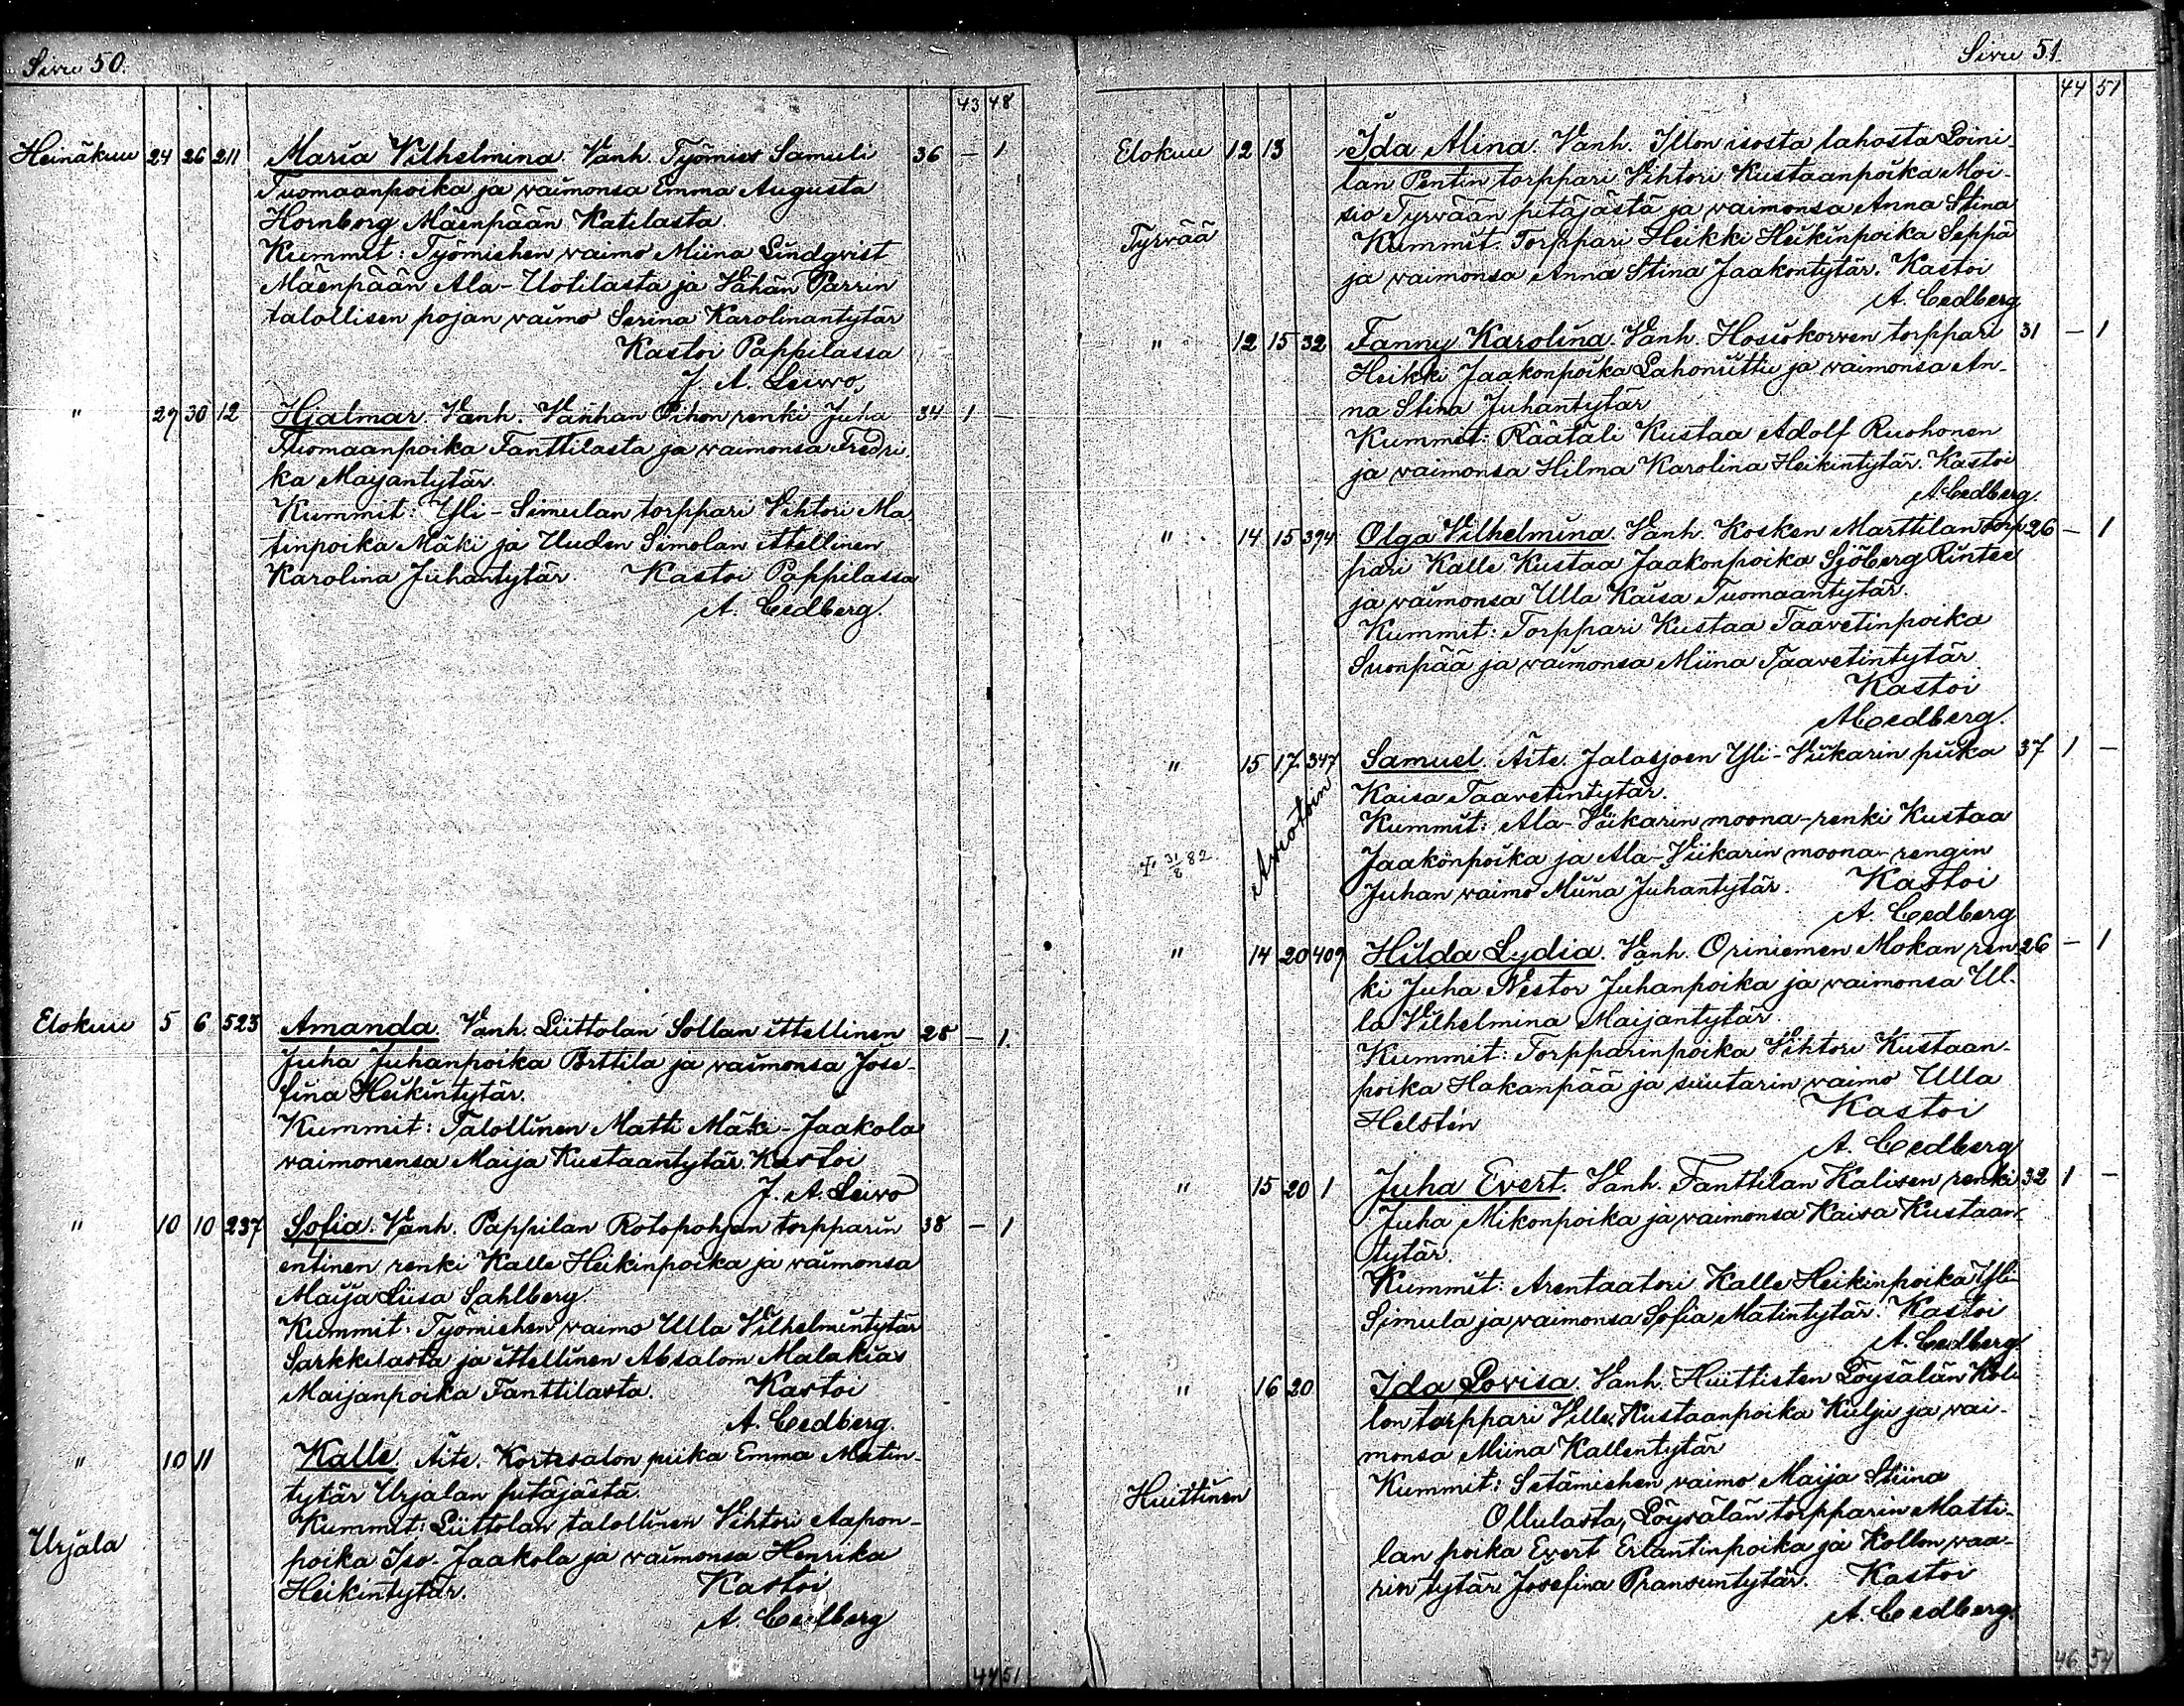 Sivu 50.
43 48
Heinäkuu 24 26 211 Maria Vilhelmina. Vanh. Työmies Samuli 36 – 1
Tuomaanpoika ja vaimonsa Emma Augusta
Hornborg Mäenpään Katilasta.
Kummit: Työmiehen vaimo Miina Lindqvist
Mäenpään Ala-Uotilasta ja Vähän Parrin
talollisen pojan vaimo Serina Karolinantytär
Kastoi Pappilassa
J. A. Leivo,
" 27 30 12 Hjalmar. Vanh. Vanhan Pihon renki Juha 34 1 –
Tuomaanpoika Fanttilasta ja vaimonsa Fredri
ka Maijantytär.
Kummit: Yli-Simulan torppari Vihtori Ma
tinpoika Mäki ja Uuden Simolan ittellinen
Karolina Juhantytär. Kastoi Pappilassa
A. Cedberg.
Elokuu 5 6 523 Amanda. Vanh. Liittolan Sollan ittellinen 28 – 1.
Juha Juhanpoika Porttila ja vaimonsa Jose-
fiina Heikintytär.
Kummit: Talollinen Matti Mäki-Jaakola
vaimonensa Maija Kustaantytär. Kastoi
J. A. Leivo
" 10 10 237 Sofia. Vanh. Pappilan Rotopohjan torpparin 38 – 1
entinen renki Kalle Heikinpoika ja vaimonsa
Maija Liisa Sahlberg.
Kummit: Työmiehen vaimo Ulla Vilhelmintytär
Sarkkilasta ja ittellinen Absalom Malakias
Maijanpoika Fanttilasta. Kastoi
A. Cedberg.
" 10 11 Kalle. Äite. Kortesalon piika Emma Matin-
tytär Urjalan pitäjästä.
Kummit: Liittolan talollinen Vihtori Aapon-
Urjala
poika Iso-Jaakola ja vaimonsa Henrika
Heikintytär. Kastoi
A. Cedberg
44 51
Sivu 51.
44 51
Elokuu 12 13 Ida Alina. Vanh. Illon isosta lahosta Loini-
lan Pentin torppari Vihtori Kustaanpoika Moi-
sio Tyrvään pitäjästä ja vaimonsa Anna Stina
Tyrvää
Kummit. Torppari Heikki Heikinpoika Seppä
ja vaimonsa Anna Stina Jaakontytär. Kastoi
A. Cedberg
" 12 15 32 Fanny Karolina. Vanh. Hosiokorven torppari 31 – 1
Heikki Jaakonpoika Lahoniittu ja vaimonsa An-
na Stina Juhantytär
Kummit: Räätäli Kustaa Adolf Ruohonen
ja vaimonsa Hilma Karolina Heikintytär. Kastoi
A Cedberg.
" 14 15 394 Olga Vilhelmina. Vanh. Kosken Marttilan torp 26 – 1
pari Kalle Kustaa Jaakonpoika Sjöberg Rintee
ja vaimonsa Ulla Kaisa Tuomaantytär.
Kummit: Torppari Kustaa Taavetinpoika
Suonpää ja vaimonsa Miina Taavetintytär.
Kastoi
A Cedberg.
" 15 17 347 Samuel. Äite. Jalasjoen Yli-Viikarin piika 37 1 –
Kaisa Taavetintytär.
Aviotoin
Kummit: Ala-Viikarin moona-renki Kustaa
† 31/8 82
Jaakonpoika ja Ala-Viikarin moona-rengin
Juhan vaimo Miina Juhantytär. Kastoi
A. Cedberg
" 14 20 409 Hilda Lydia. Vanh. Oriniemen Mokan ren- 26 – 1
ki Juha Nestor Juhanpoika ja vaimonsa Ul-
la Vilhelmina Maijantytär.
Kummit: Torpparinpoika Vihtori Kustaan-
poika Hakanpää ja suutarin vaimo Ulla
Helstén Kastoi
A. Cedberg
" 15 20 1 Juha Evert. Vanh. Fanttilan Kalisen renki 32 1 –
Juha Mikonpoika ja vaimonsa Kaisa Kustaan-
tytär.
Kummit: Arentaatori Kalle Heikinpoika Yli-
Simula ja vaimonsa Sofia Matintytär. Kastoi
A. Cedberg.
" 16 20 Ida Lovisa. Vanh. Huittisten Löysälän Kol-
lon torppari Ville Kustaanpoika Kulju ja vai-
monsa Miina Kallentytär
Kummit: Setämiehen vaimo Maija Stiina
Huittinen
Ollulasta, Löysälän torpparin Matti-
lan poika Evert Erlantinpoika ja Kollon vaa-
rin tytär Josefina Pransuntytär. Kastoi
A. Cedberg.
46 54